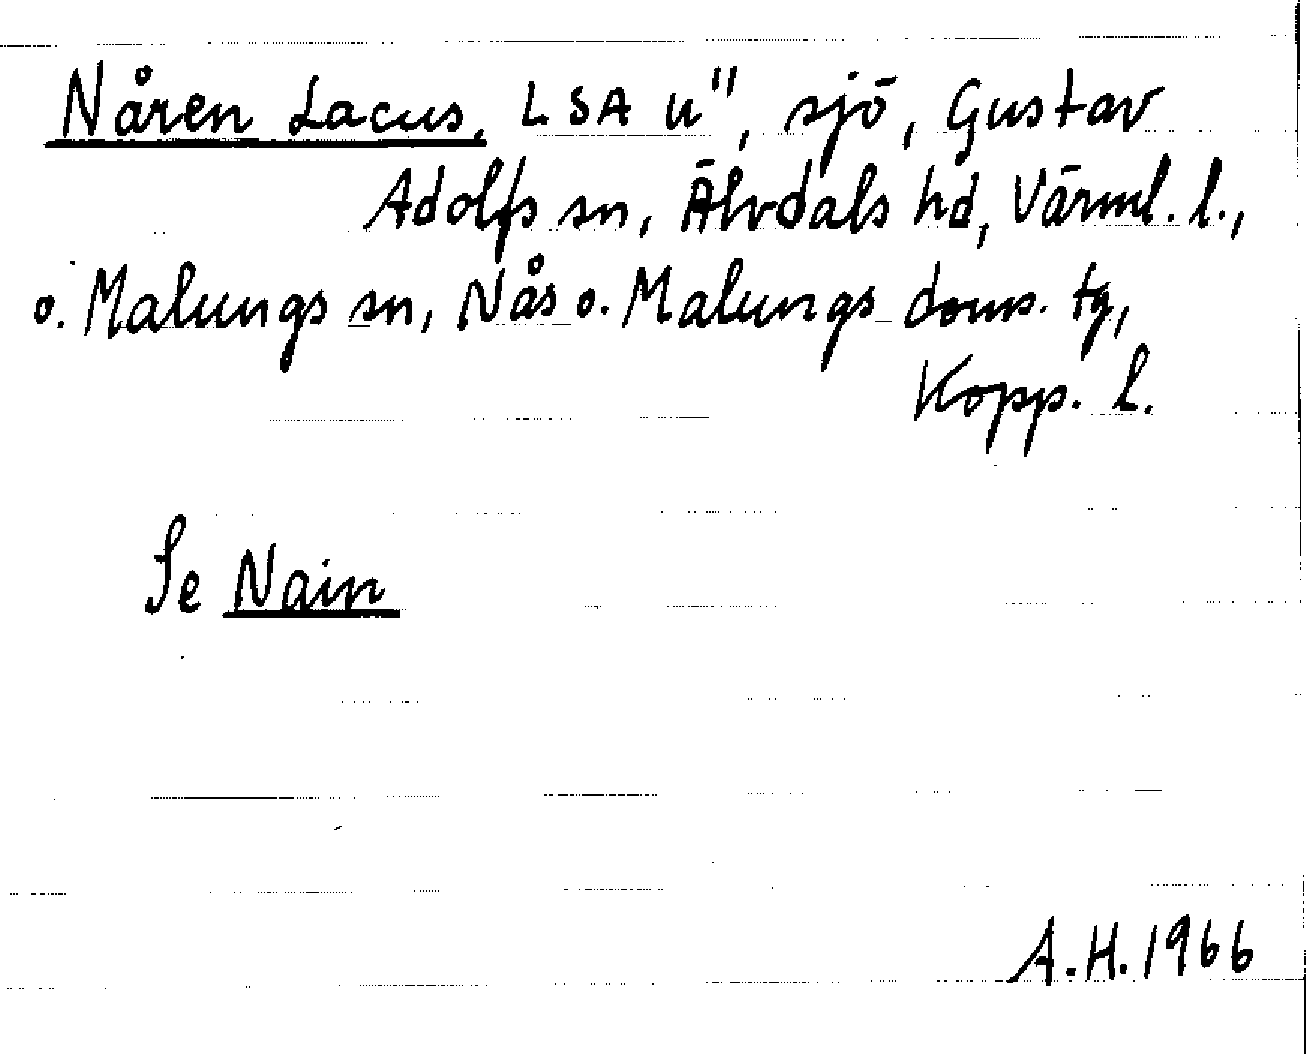 Nåren Lacus, LSA u", sjö, Gustav
Adolfs sn, Älvdals hd, Värml. l.,
o. Malungs sn, Nås o. Malungs doms. tg,
Kopp. l.
Se Nain
A.H. 1966